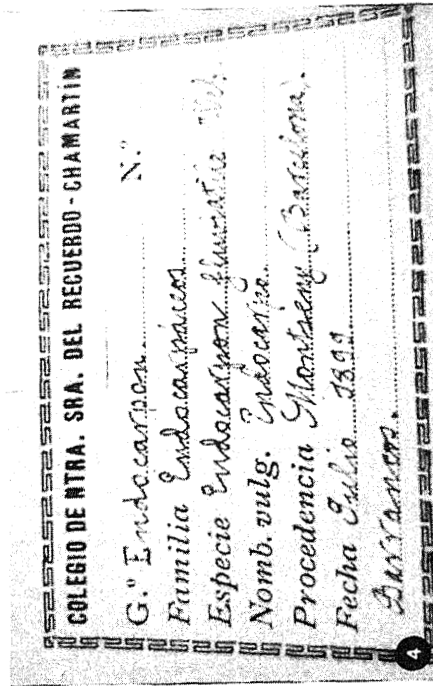 COLEGIO DE NTRA. SRA. DEL RECUERDO - CHAMARTÍN
G.º Endocarpon. N.º
Familia Endocarpáceos
Especie Endocarpon fluviatile
Nomb. vulg. Endocarpo.
Procedencia Montseny (Barcelona).
Fecha Julio 1899
Barrancos.
4